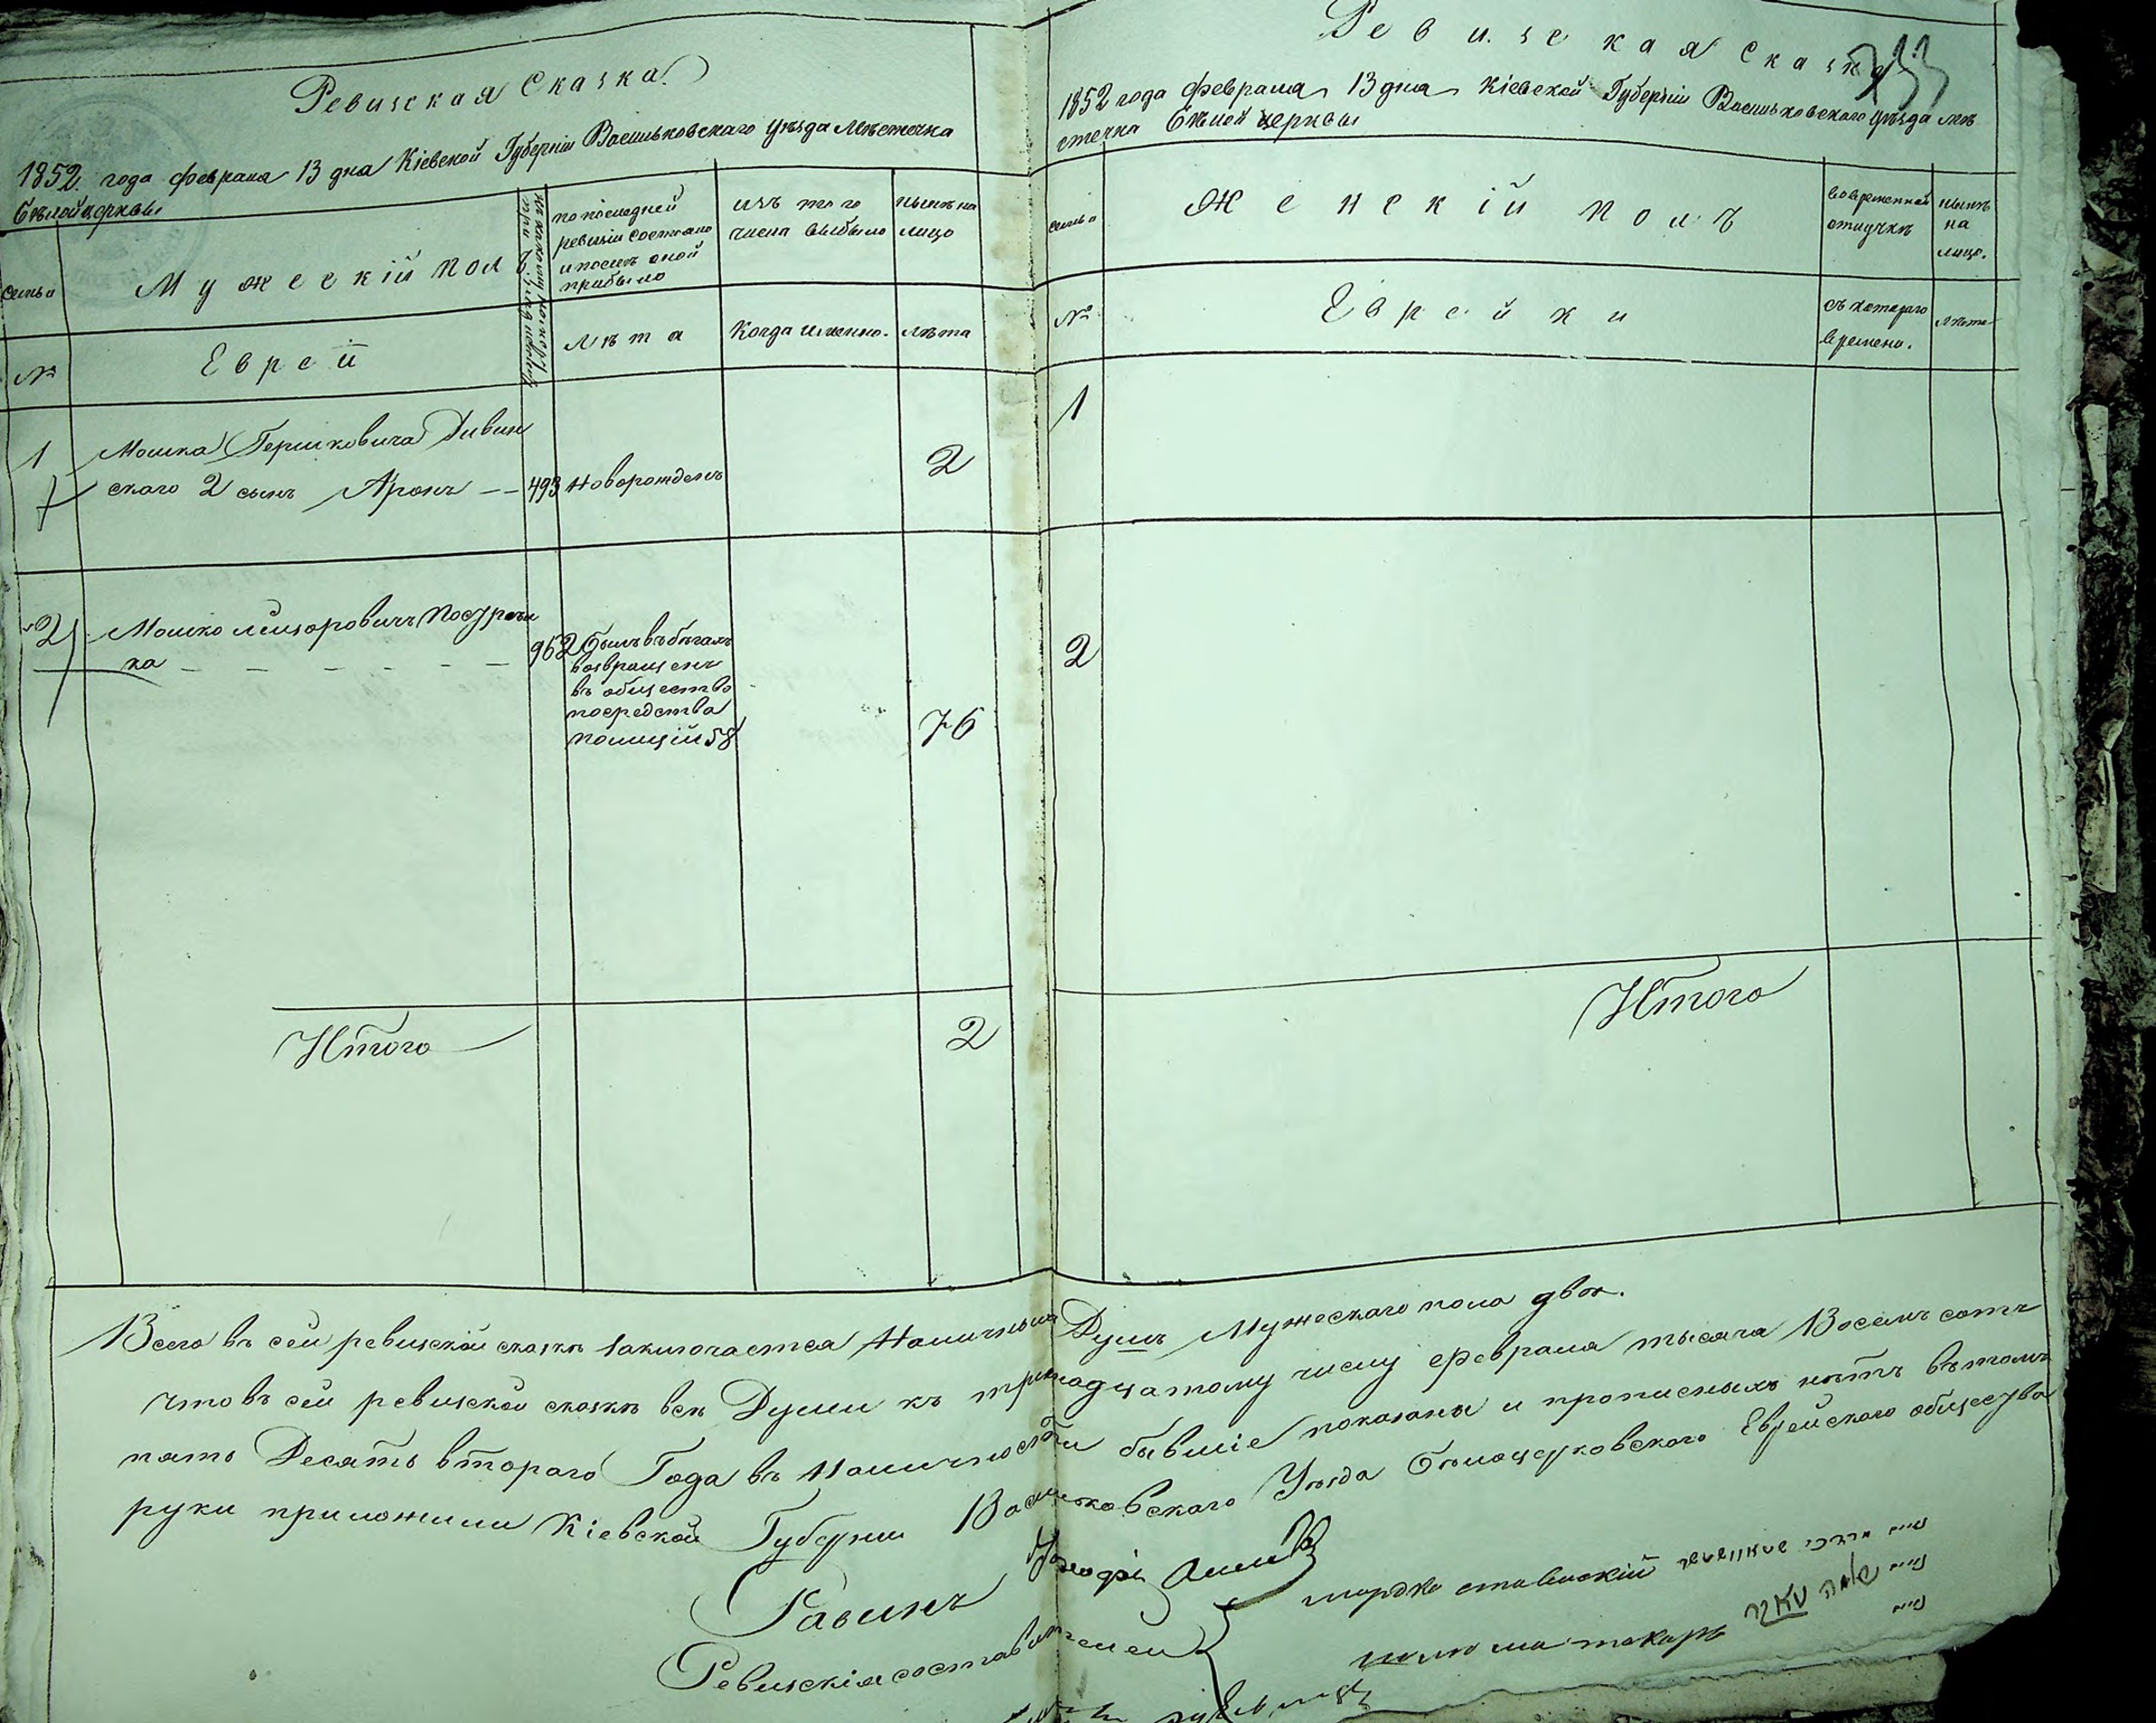 Ревизская Сказка
1852 года февраля 13 дня Кіевской Губерніи Васильковскаго уѣзда Мѣстечка
Бѣлой церквы
семьи
Мужескій полъ
по послѣдней
ревизіи состояло
и послѣ оной
прибыло
изъ того
числа выбыло
нынѣ на
лицо
№
Евреи
Лѣта
Когда именно.
лѣта
1
Мошка Гершковича Дивин
скаго 2 сынъ Аронъ — — 493 Новорожденъ
2
2
Мошко Лейзоровичъ
ка — — — — — — 962 былъ въ бѣгахъ
возвращенъ
въ общество
посредства
полиціи 58
76
Итого
2
Ревизская Сказка
1852 года февраля 13 дня Кіевской Губерніи Васильковскаго уѣзда Мѣ
стечка Бѣлой церквы
семьи
Женскій полъ
во временной
отлучкѣ
нынѣ
на
лицо.
№
Еврейки
съ котораго
времени.
Лѣта
1
2
Итого
Всего въ сей ревизской сказкѣ заключается Наличныхъ Душъ Мужескаго пола двѣ.
что въ сей ревизской сказкѣ всѣ Души къ тринадцатому числу февраля тысяча Восемь сотъ
пять Десятъ втораго Года въ Наличности бывшіе показаны и прописныхъ нѣтъ въ томъ
руки приложили Кіевской Губерніи Васильковскаго Уѣзда Бѣлоцерковскаго Еврейскаго общества
Равинъ
мордко ставискій
Ревизскія составители
шлиома токарь